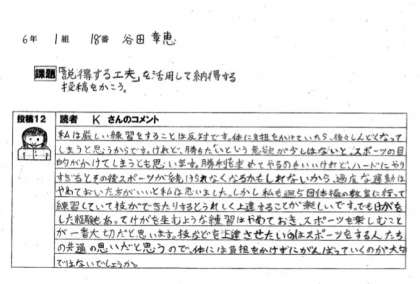 6年 1組 18番 谷田 幸恵
課題 「説得する工夫」を活用して納得する
投稿をかこう。
投稿12 読者 K さんのコメント
私は厳しい練習をすることは反対です。体に負担をかけていたら、後々しんどくなって
しまうと思うからです。けれど、勝ちたいという意地が少しはないと、スポーツの目
的がかけてしまうとも思います。勝利を求めてやるのもいいけれど、ハードにやり
すぎるとその後スポーツが続けられなくなるかもしれないから、過度な運動は
やめておいた方がいいと私は思いました。しかし私も週5団体操の教室に行って
練習していて技ができたりするとうれしく上達することが楽しいです。でもけがを
した経験もあってけがを生むような練習はやめておき、スポーツを楽しむこと
が一番大切だと思います。技などを上達させたいのはスポーツをする人たち
の共通の思いだと思うので、体には負担をかけずにがんばっていくのが大切
ではないでしょうか。